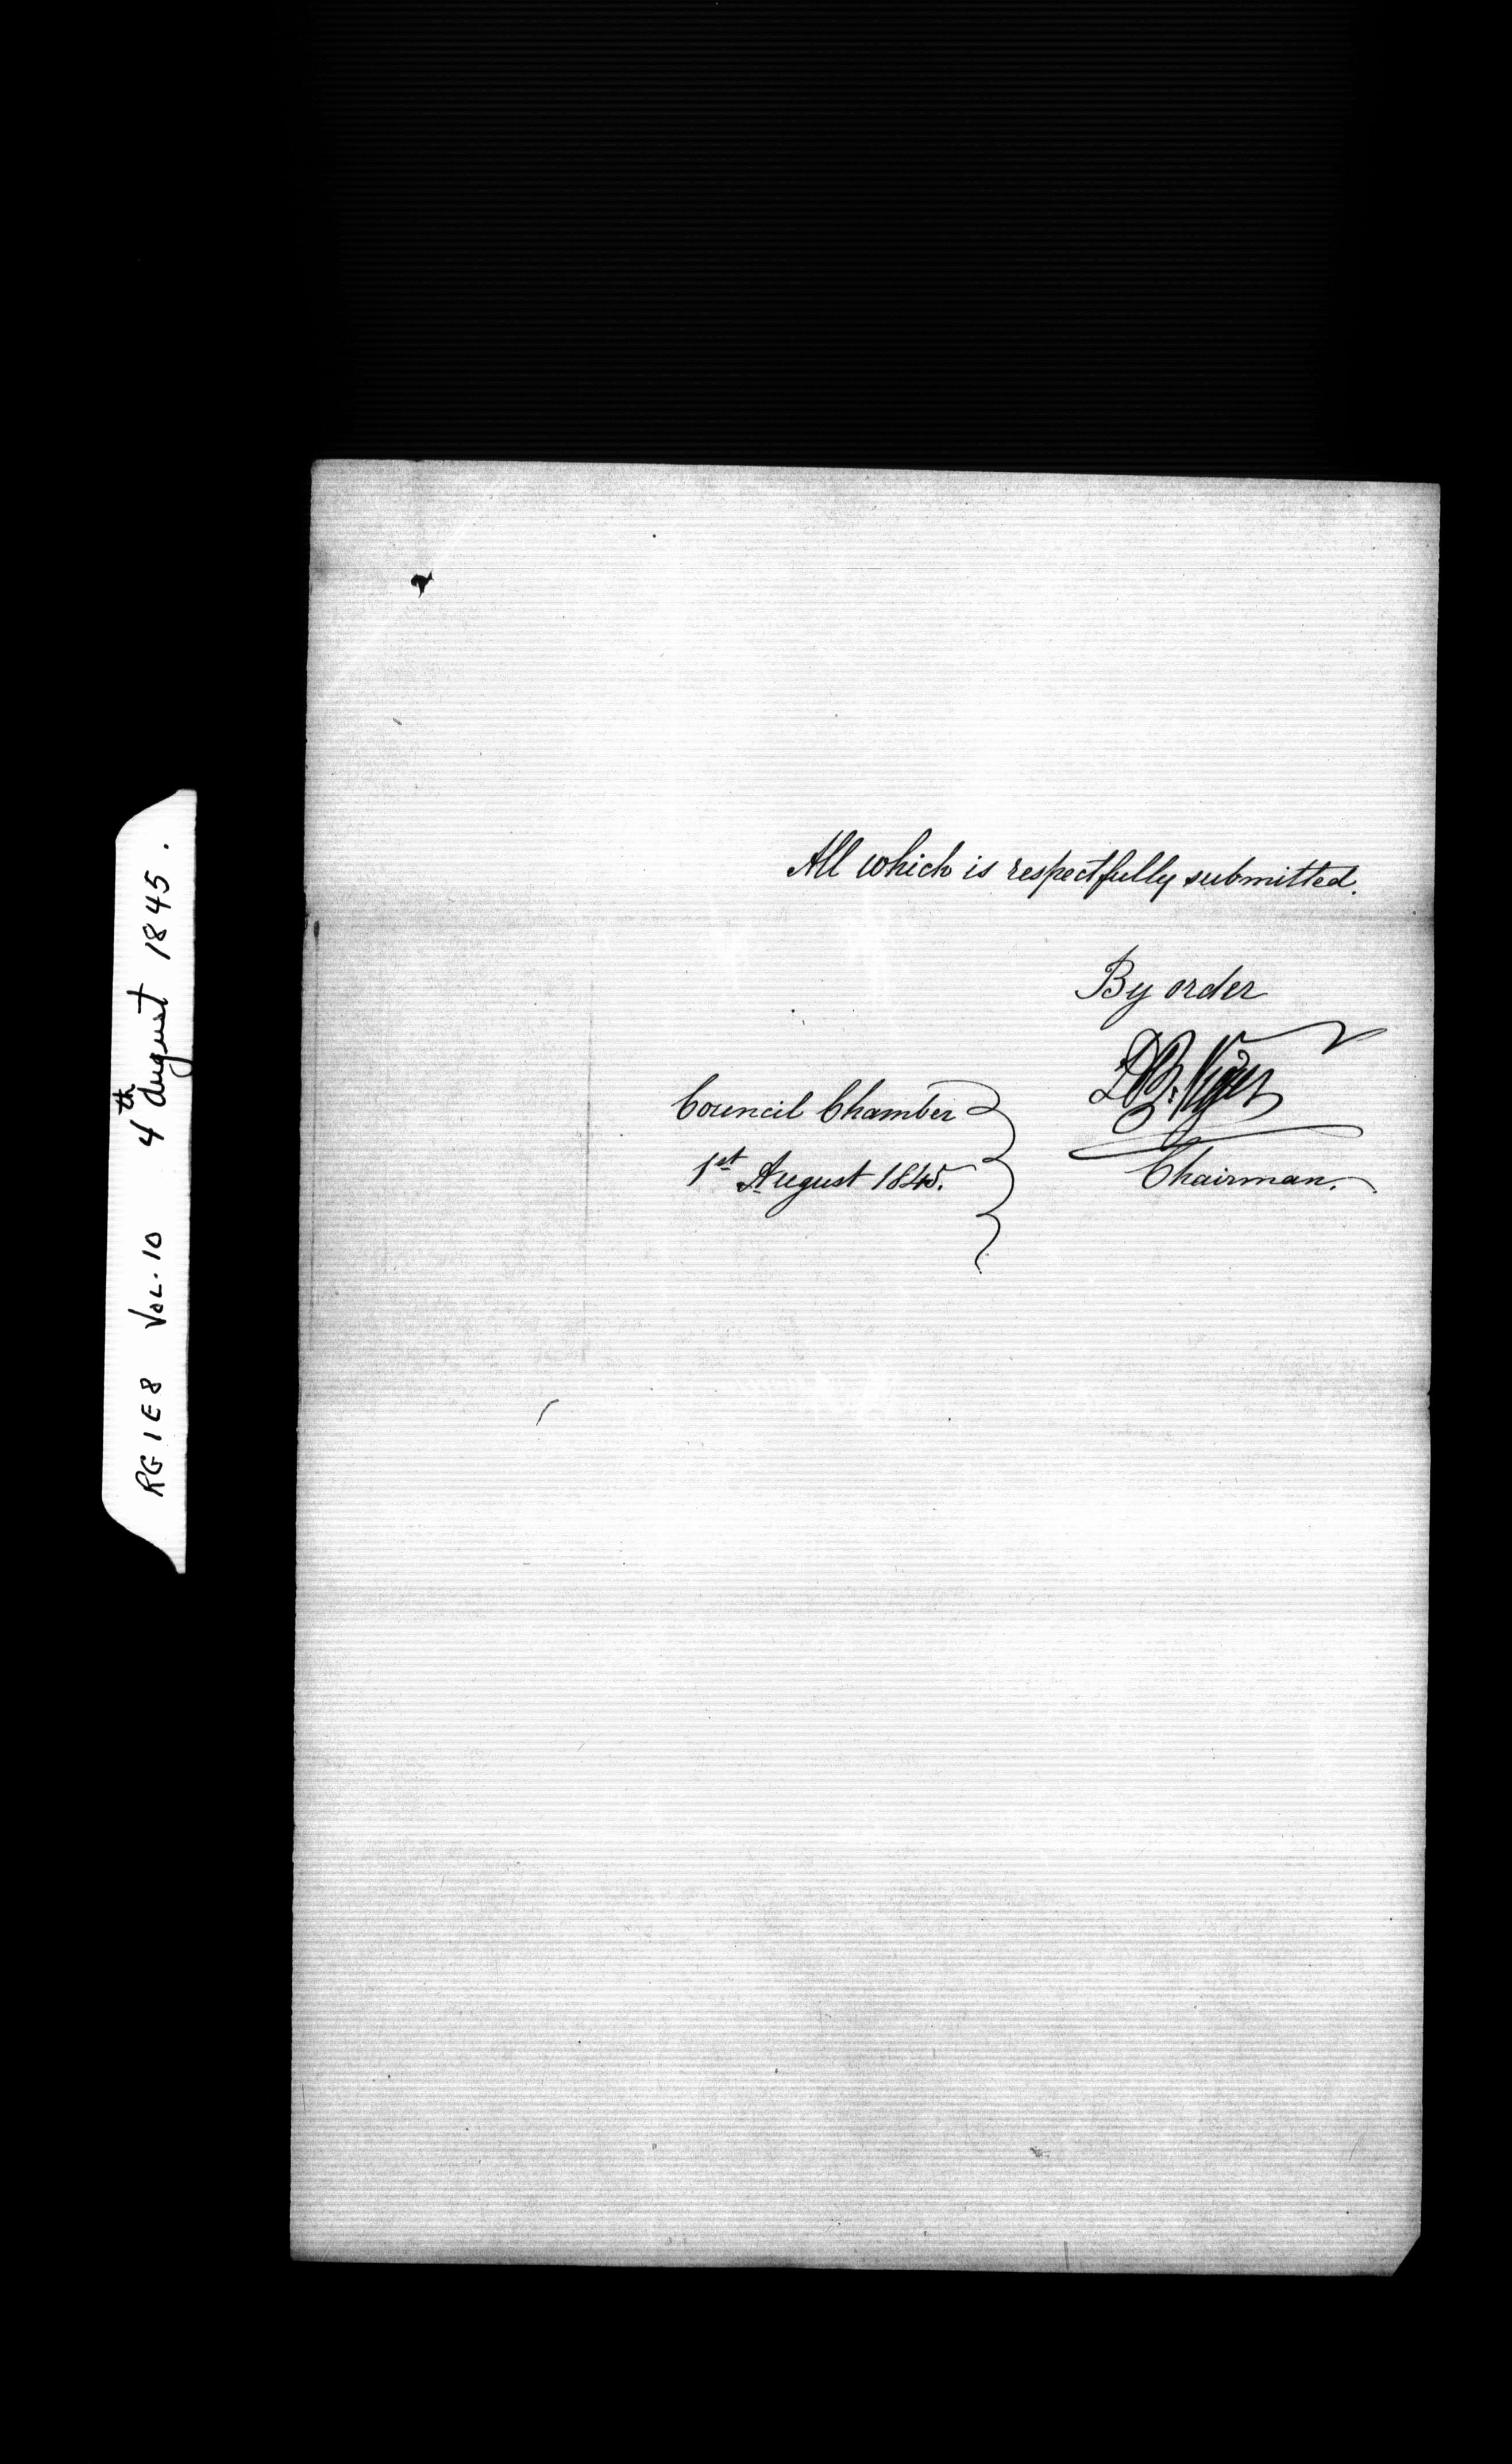 All which is respectfully submitted.
By order
D.B. Viger
Council Chamber
1st August 1845.
Chairman.
RG 1 E 8 VOL. 10 4th August 1845.